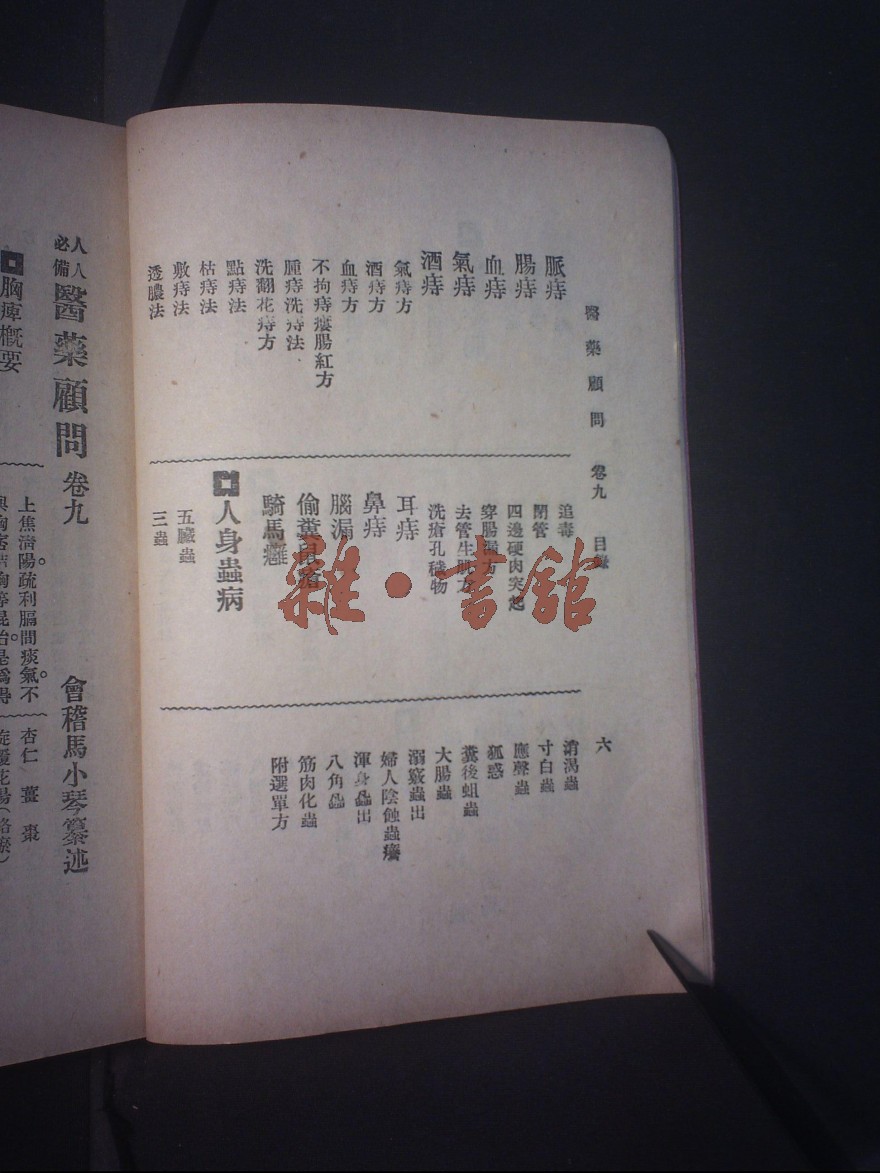 醫藥顧問 卷九 目錄 六
脈痔
腸痔
血痔
氣痔
酒痔
氣痔方
酒痔方
血痔方
不拘痔瘻腸紅方
腫痔洗痔法
洗翻花痔方
點痔法
枯痔法
敷痔法
透膿法
追毒
閉管
四邊硬肉突起
穿腸漏方
去管生肌方
洗瘡孔穢物
耳痔
鼻痔
腦漏
偷糞鼠瘡
騎馬癰
人身蟲病
五臟蟲
三蟲
消渴蟲
寸白蟲
應聲蟲
狐惑
糞後蛆蟲
大腸蟲
溺竅蟲出
婦人陰蝕蟲瘡
渾身蟲出
八角蟲
筋肉化蟲
附選單方
雜·書館
人人必備 醫藥顧問 卷九 會稽馬小琴纂述
胸痺概要
上焦清陽。疏利膈間痰氣。不
杏仁 薑 棗